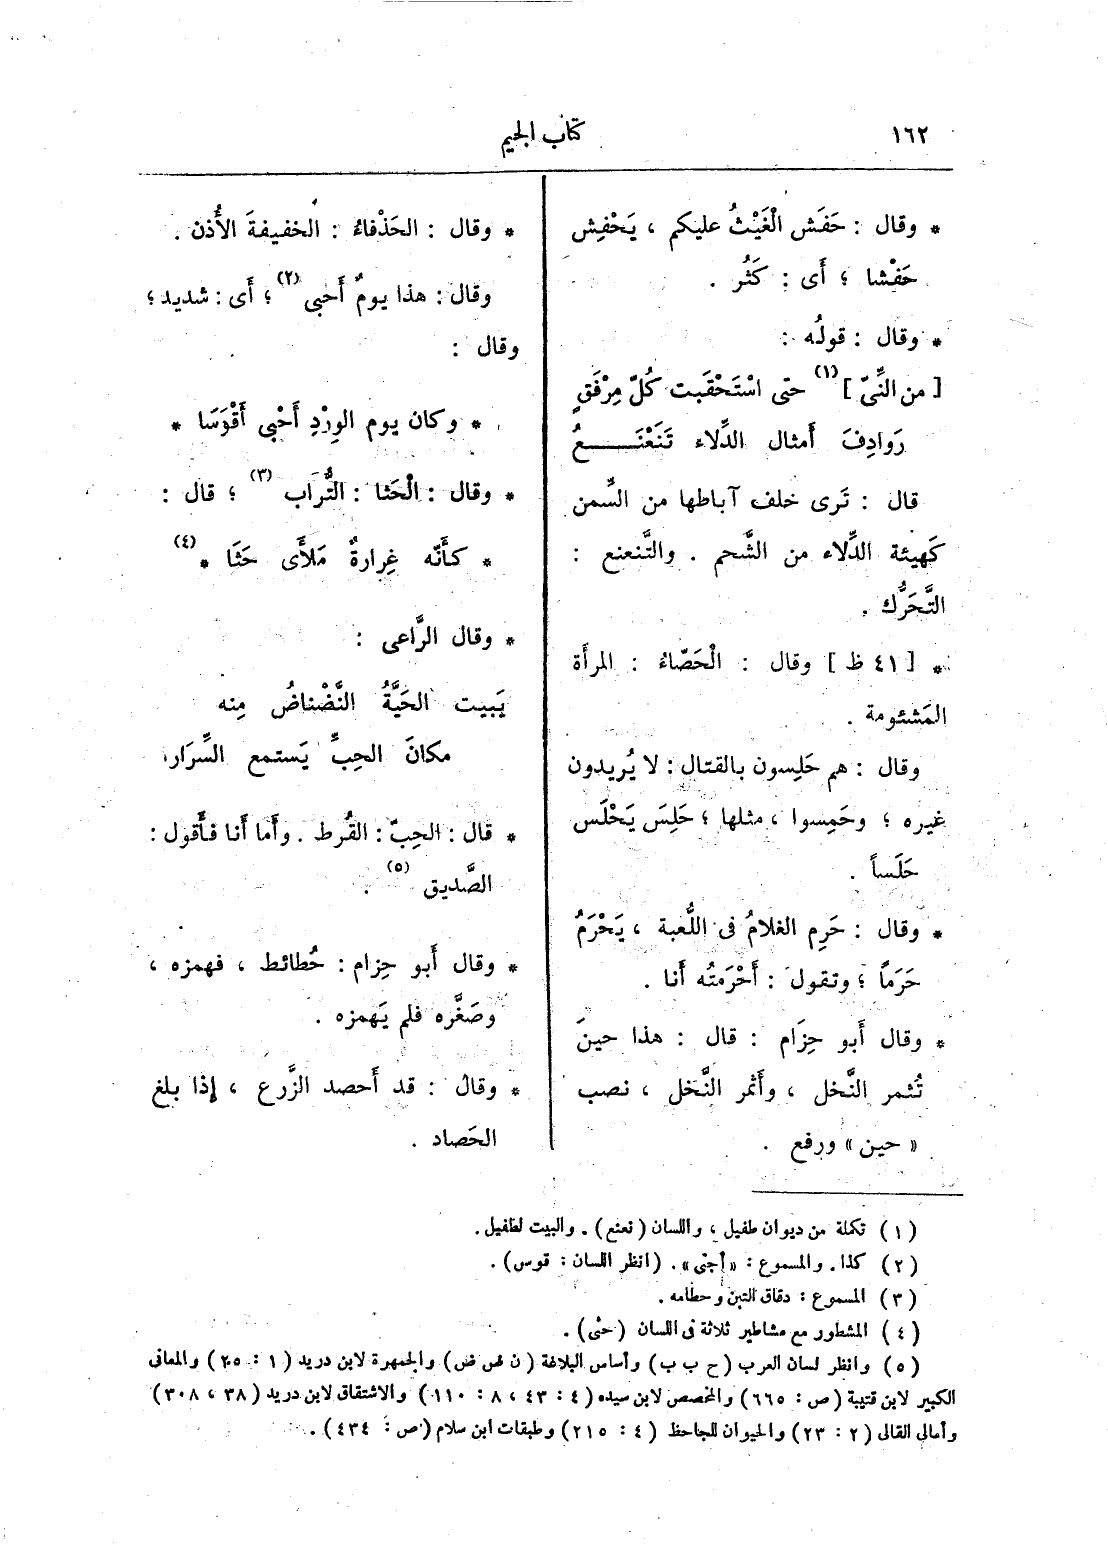 ١٦٢
كتاب الجيم
* وقال : حَفَش الْغَيْثُ عليكم ، يَحْفِش
حَفْشا ؛ أَى : كَثُر .
* وقال : قولُه :
[ من النِّىّ ] (١) حتى اسْتَحْقَبت كُلّ مِرْفَقٍ
رَوادِفَ أَمثال الدِّلاء تَنَعْنَــــعُ
قال : تَرى خلف آباطها من السِّمن
كَهيئة الدِّلاء من الشَّحم . والتَّنعنع :
التَّحَرُّك .
* [ ٤١ ظ ] وقال : الْحَصّاءُ : المرأَة
المَشئومة .
وقال : هم حَلِسون بالقتال : لا يُريدون
غيره ؛ وحَمِسوا ، مثلها ؛ حَلِسَ يَحْلَس
حَلَساً .
* وقال : حَرِم الغلامُ فى اللُّعبة ، يَحْرَمُ
حَرَماً ؛ وتقول : أَحْرَمتُه أَنا .
* وقال أَبو حِزَام : قال : هذا حينَ
تُثمر النَّخل ، وأَثمر النَّخل ، نصب
« حين » ورفع .
* وقال : الحَذْفاءُ : الخفيفةَ الأُذن .
وقال : هذا يومٌ أَحْبى (٢) ؛ أَى : شديد ؛
وقال :
* وكان يوم الوِرْدِ أَحْبى أَقْوَسَا *
* وقال : الْحَثا : التُّرَاب (٣) ؛ قال :
* كأَنّه غِرارةٌ مَلأَى حَثَا * (٤)
* وقال الرَّاعى :
يَبيت الحَيَّةُ النَّضْناضُ مِنه
مكانَ الحِبِّ يَستمع السِّرَارا
* قال : الحِبّ : القُرط . وأَما أَنا فأَقول :
الصَّديق (٥) .
* وقال أَبو حِزام : حُطائط ، فهمزه ،
وصَغَّره فلم يَهمزه .
* وقال : قد أَحصد الزَّرع ، إِذا بلغ
الحَصاد .
(١) تكملة من ديوان طفيل ، واللسان (نعنع) . والبيت لطفيل .
(٢) كذا . والمسموع : «أجنى» . (انظر اللسان : قوس) .
(٣) المسموع : دقاق التبن وحطامه .
(٤) المشطور مع مشاطير ثلاثة فى اللسان (حثى) .
(٥) وانظر لسان العرب (ح ب ب) وأساس البلاغة (ن ض ض) والجمهرة لابن دريد (١ : ٢٥) والمعانى
الكبير لابن قتيبة (ص : ٦٦٥) والمخصص لابن سيده (٤ : ٤٣ ، ٨ : ١١٠) والاشتقاق لابن دريد (٣٨ ، ٣٠٨)
وأمالى القالى (٢ : ٢٣) والحيوان للجاحظ (٤ : ٢١٥) وطبقات ابن سلام (ص : ٤٣٤) .